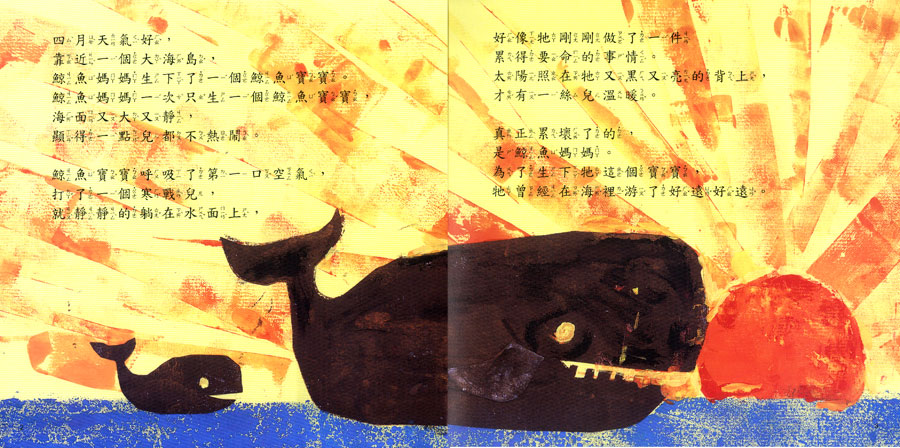 四月天氣好，
靠近一個大海島，
鯨魚媽媽生下了一個鯨魚寶寶。
鯨魚媽媽一次只生一個鯨魚寶寶，
海面又大又靜，
顯得一點兒都不熱鬧。
鯨魚寶寶呼吸了第一口空氣，
打了一個寒戰兒，
就靜靜的躺在水面上，
好像牠剛剛做了一件
累得要命的事情。
太陽照在牠又黑又亮的背上，
才有一絲兒溫暖。
真正累壞了的，
是鯨魚媽媽。
為了生下牠這個寶寶，
牠曾經在海裡游了好遠好遠。